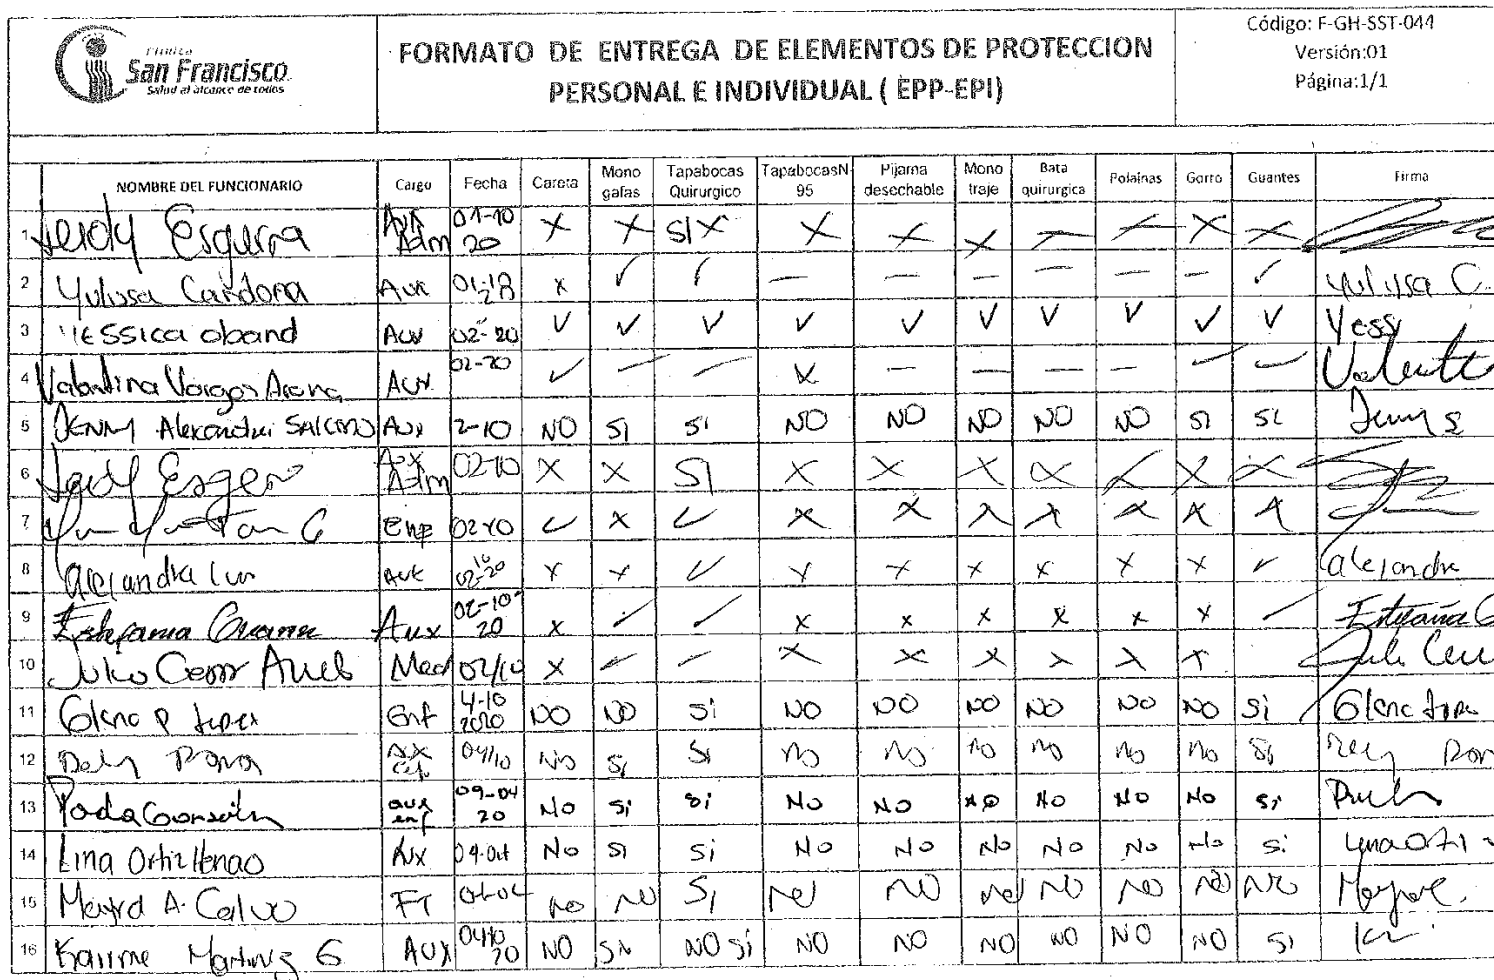 Clínica
San Francisco.
Salud al alcance de todos
FORMATO DE ENTREGA DE ELEMENTOS DE PROTECCION
PERSONAL E INDIVIDUAL ( EPP-EPI)
Código: F-GH-SST-044
Versión:01
Página:1/1
NOMBRE DEL FUNCIONARIO Cargo Fecha Careta Mono gafas Tapabocas Quirurgico TapabocasN-95 Pijama desechable Mono traje Bata quirurgica Polainas Gorro Guantes Firma
1 Leidy Esguerra Aux Adm 01-10 20 X X SI X X X X X X X
2 Yulissa Cardona Aux x ✓ ✓ — — — — — — ✓ Yulissa C.
3 Yessica oband Aux 02-20 ✓ ✓ ✓ ✓ ✓ ✓ ✓ ✓ ✓ ✓ Yess
4 Valentina Vargas Aux. 02-20 ✓ — — X — — — — — —
5 JENNY Alexandra Aux 2-10 NO SI SI NO NO NO NO NO SI SI
6 Aux Adm 02-10 X X SI X X X X X X X
7 02-10 ✓ X ✓ X X X X X X X
8 alejandra Aux 02-20 X X ✓ X X X X X X ✓ alejandra
9 Estefania Aux 02-10 20 X ✓ ✓ X X X X X X ✓
10 Julio Cesar Med 02/10 X ✓ ✓ X X X X X X
11 Enf 4-10 2020 NO NO Si NO NO NO NO NO NO Si
12 04/10 No Si Si No No No No No No Si
13 aux enf 09-04 20 No Si Si No No No No No No Si
14 Lina Ortiz Henao Aux 04-Oct No SI Si No No No No No No Si
15 Mayra A. Calvo FT No NO SI NO NO NO NO NO NO NO
16 Karime Martinez G AUX 04/10 20 NO Si NO Si NO NO NO NO NO NO SI